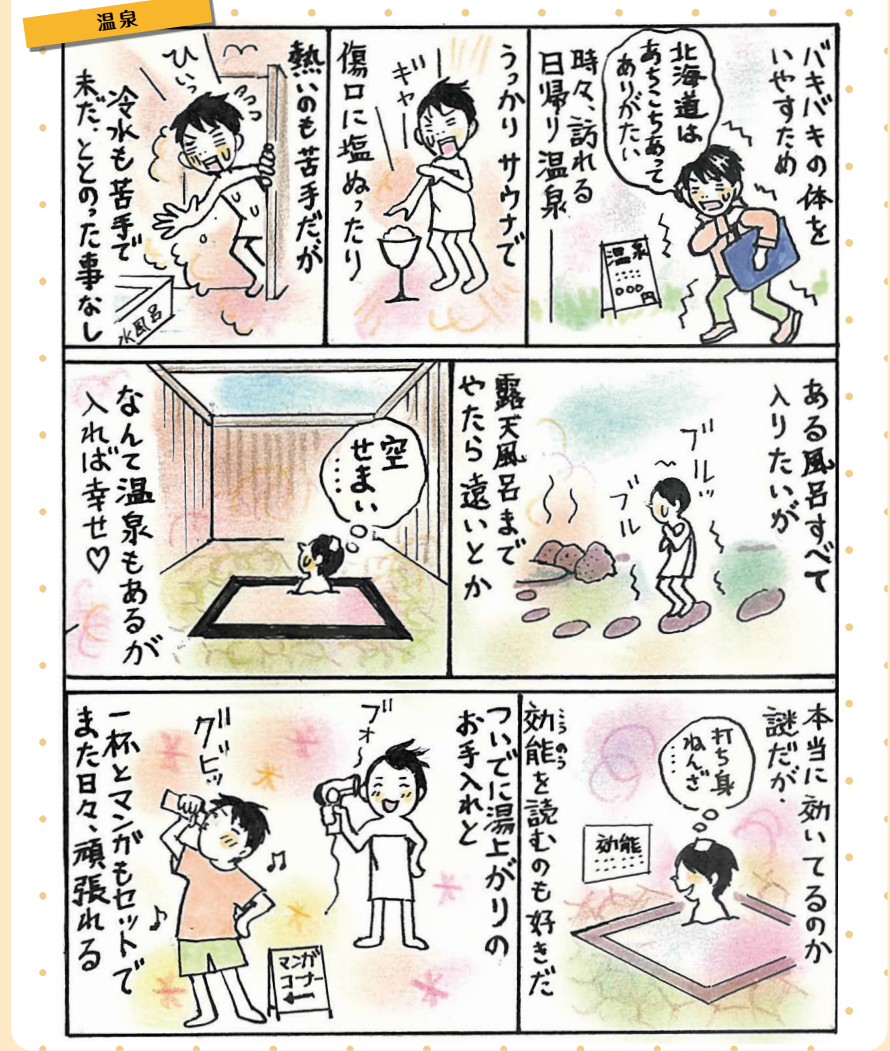 温泉
バキバキの体を
いやすため
北海道は
あちこちあって
ありがたい
時々、訪れる
日帰り温泉
温泉
000円
うっかりサウナで
ギャー
傷口に塩ぬったり
熱いのも苦手だが
ひぃっ
冷水も苦手で
未だ、ととのった事なし
水風呂
ある風呂すべて
入りたいが
ブルッ
ブル
露天風呂まで
やたら遠いとか
空
せまい
……
なんて温泉もあるが
入れば幸せ♡
本当に効いてるのか
謎だが、
打ち身
ねんざ
……
効能
こうのう
効能を読むのも好きだ
ついでに湯上がりの
お手入れと
ブォー
グビッ
マンガ
コーナー
←
一杯とマンガもセットで
また日々、頑張れる